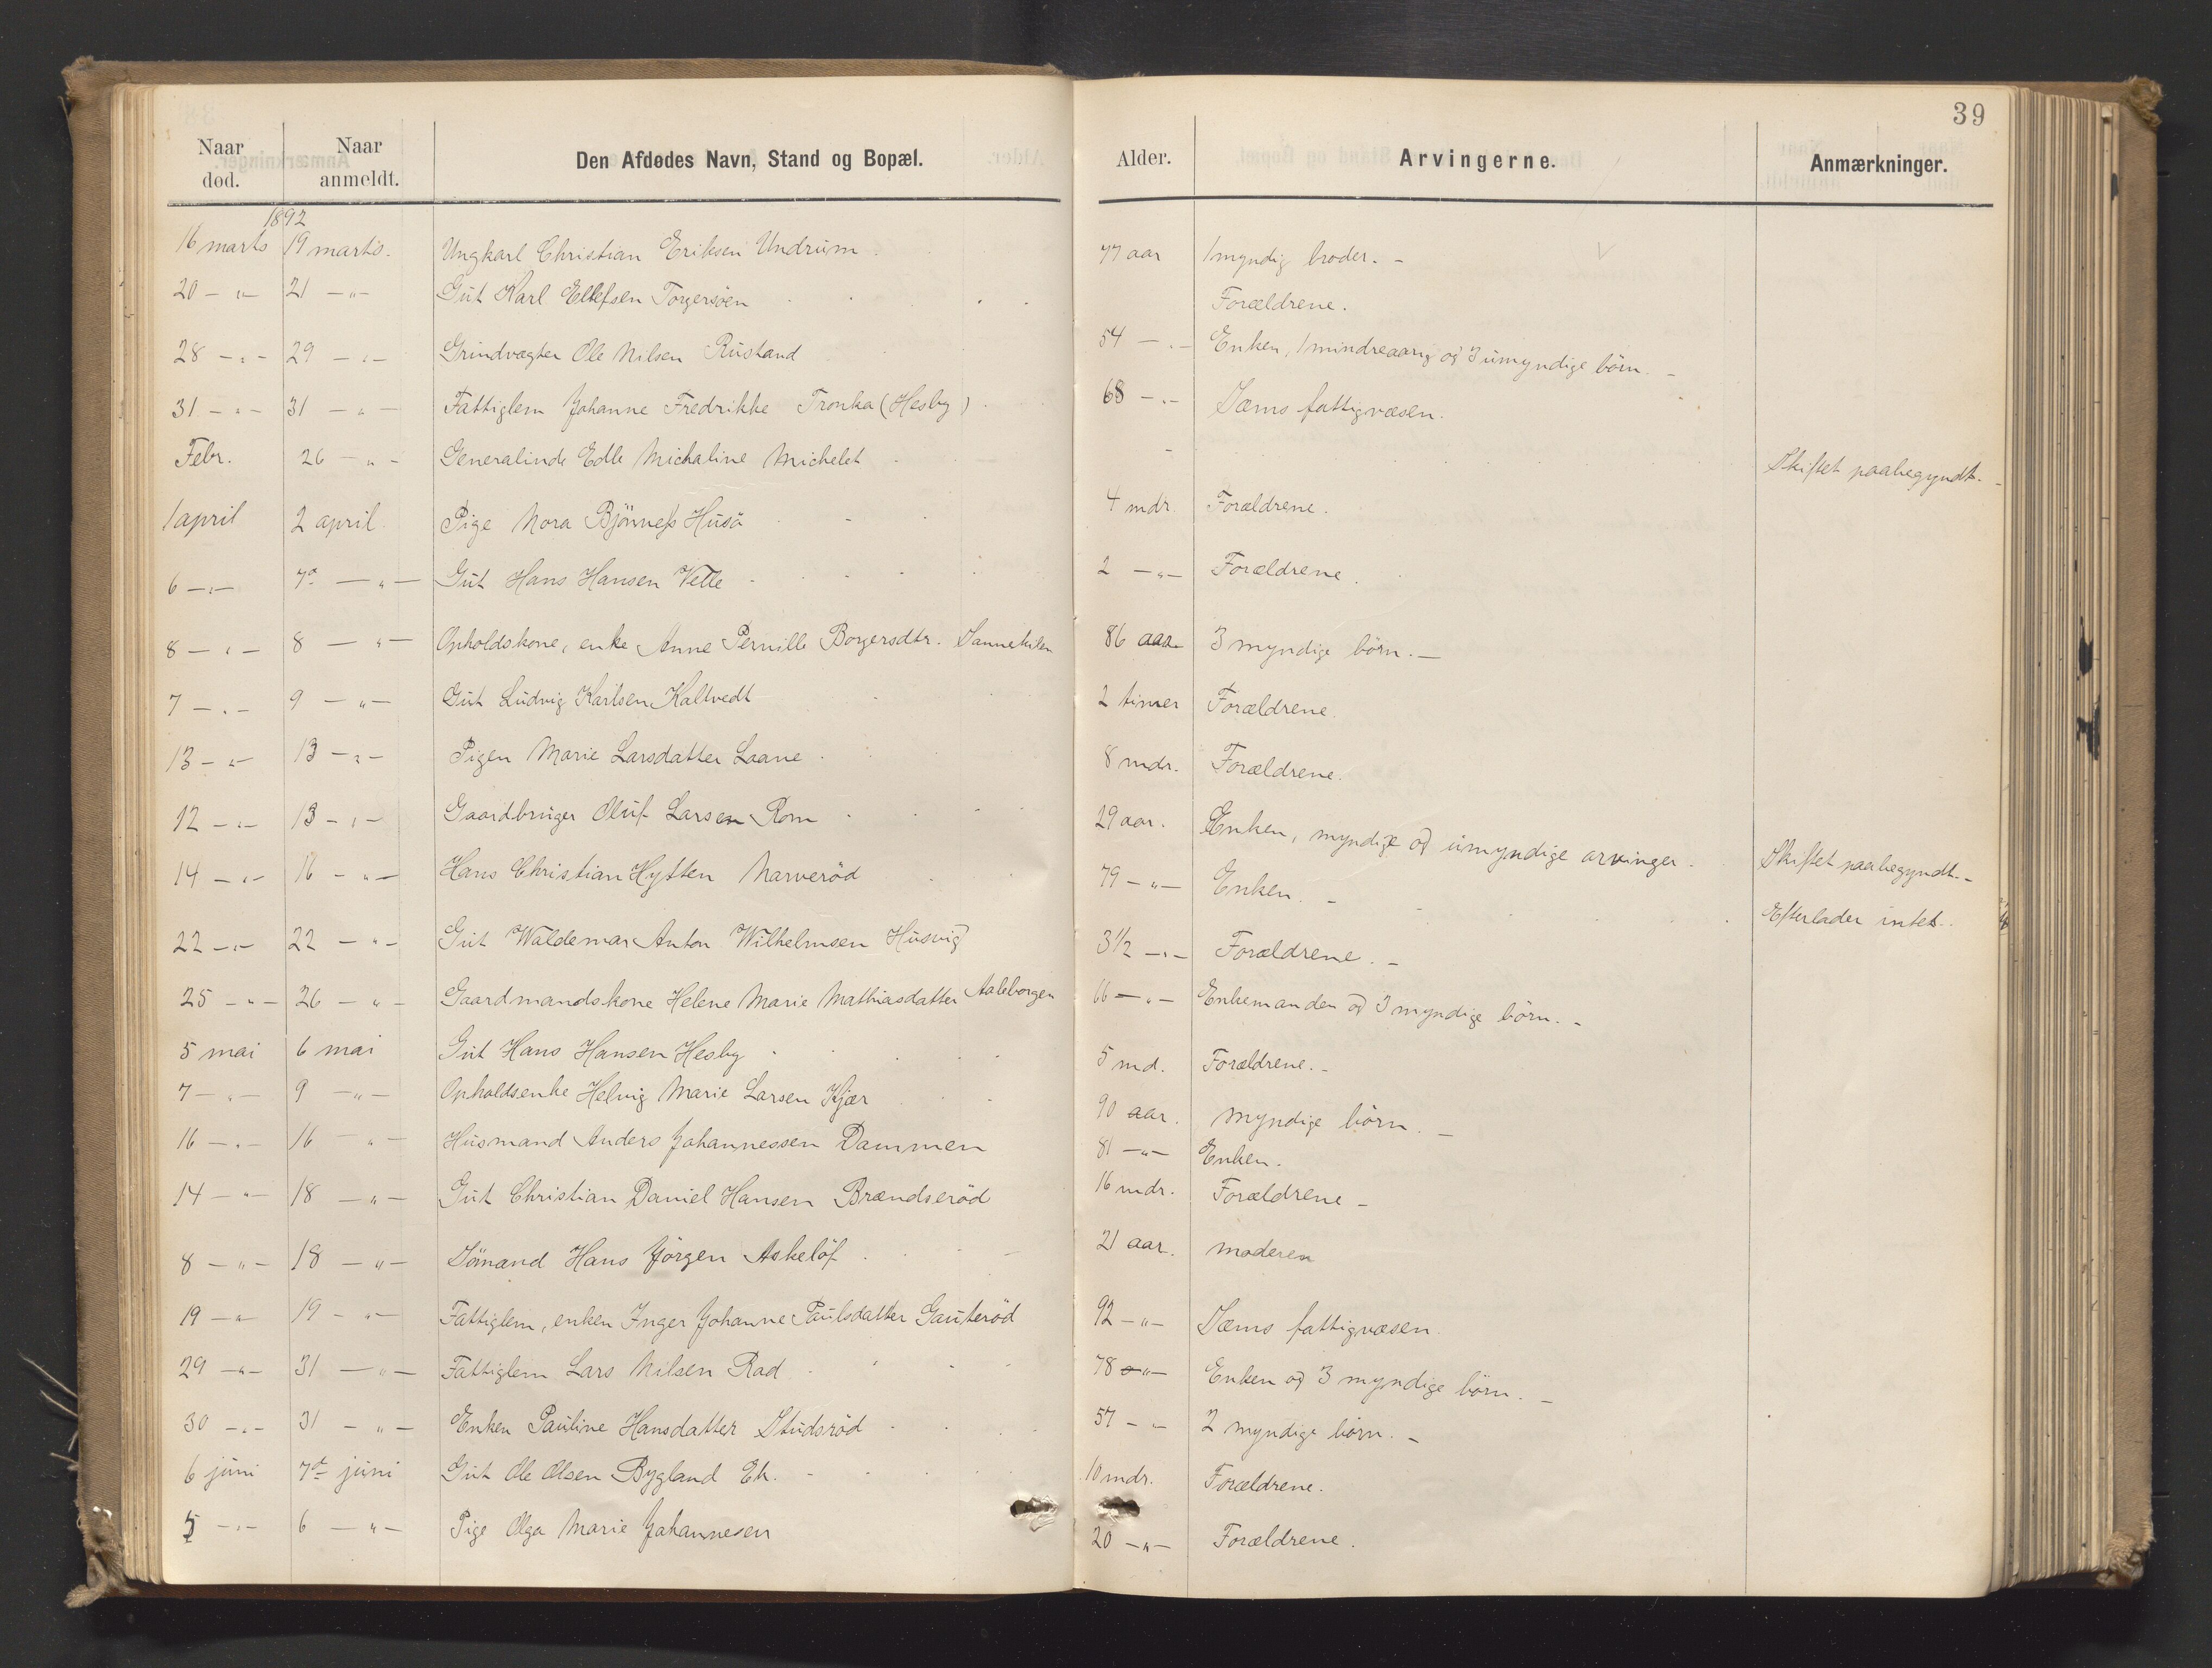 39
Naar død. Naar anmeldt. Den Afdødes Navn, Stand og Bopæl. Alder. Arvingerne. Anmærkninger.
1892
16 marts 19 marts. Ungkarl Christian Eriksen Undrum 77 aar 1 myndig broder. –
20 – " – 21 – " – Gut Karl Ellefsen Torgersöen Forældrene.
28 – " – 29 – " – Grindvogter Ole Nilsen Rustand 54 – " – Enken, 1 mindreaarig og 3 umyndige börn. –
31 – " – 31 – " – Fattiglem Johanne Fredrikke Tronka (Hesby) 68 – " – Sæms fattigvæsen.
Febr. 26 – " – Generalinde Edle Michaline Michelet – Skiftet paabegyndt. –
1 april 2 april Pige Nora Bjönness Husö 4 mdr. Forældrene.
6 – " – 7de – " – Gut Hans Hansen Velle 2 – " – Forældrene.
8 – " – 8 – " – Opholdskone, enke Anne Pernille Borgersdtr. Sannekilen 86 aar 3 myndige börn. –
7 – " – 9 – " – Gut Ludvig Karlsen Kaltvedt 2 timer Forældrene.
13 – " – 13 – " – Pigen Marie Larsdatter Laane 8 mdr. Forældrene.
12 – " – 13 – " – Gaardbruger Oluf Larsen Rom 29 aar. Enken, myndige og umyndige arvinger. Skiftet paabegyndt. –
14 – " – 16 – " – Hans Christian Hytten Marveröd 79 – " – Enken. – Efterlader intet.
22 – " – 22 – " – Gut Waldemar Anton Wilhelmsen Husvig 3 1/2 – " – Forældrene. –
25 – " – 26 – " – Gaardmandskone Helene Marie Mathiasdatter Aaleborgen 66 – " – Enkemanden og 3 myndige börn. –
5 mai 6 mai Gut Hans Hansen Hesby 5 md. Forældrene. –
7 – " – 9 – " – Opholdsenke Helvig Marie Larsen Kjær 90 aar. myndige börn. –
16 – " – 16 – " – Husmand Anders Johannessen Dammen 81 – " – Enken.
14 – " – 18 – " – Gut Christian Daniel Hansen Brændseröd 16 mdr. Forældrene –
8 – " – 18 – " – Sömand Hans Jörgen Askelöf 21 aar. moderen
19 – " – 19 – " – Fattiglem, enken Inger Johanne Paulsdatter Gauteröd 92 – " – Sæms fattigvæsen.
29 – " – 31 – " – Fattiglem Lars Nilsen Rad 78 – " – Enken og 3 myndige börn. –
30 – " – 31 – " – Enken Pauline Hansdatter Studsröd 57 – " – 2 myndige börn. –
6 juni 7de juni Gut Ole Olsen Bygland Ek. 10 mdr. Forældrene.
5 – " – 6 – " – Pige Olga Marie Johannesen 20 – " – Forældrene.